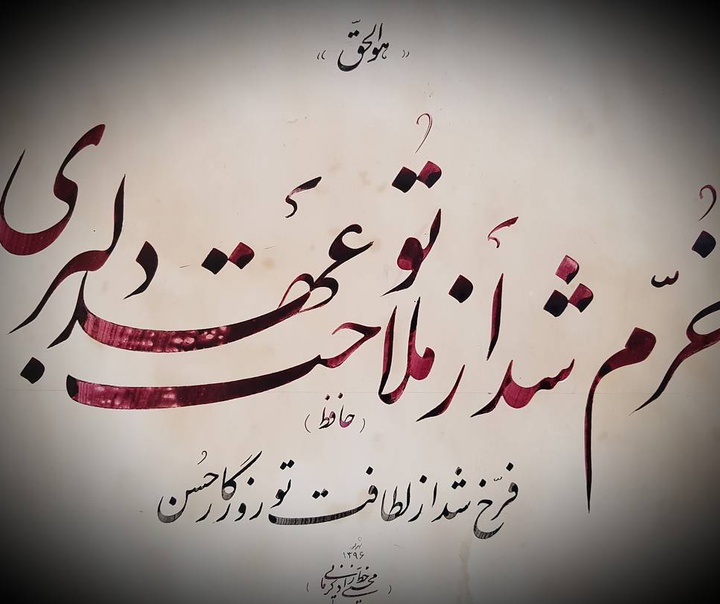 « هوالحقّ »
خُرّم شد از ملاحت تو عهد دلبری
( حافظ )
فرّخ شد از لطافت تو روزگار حُسن
۱۳۹۶